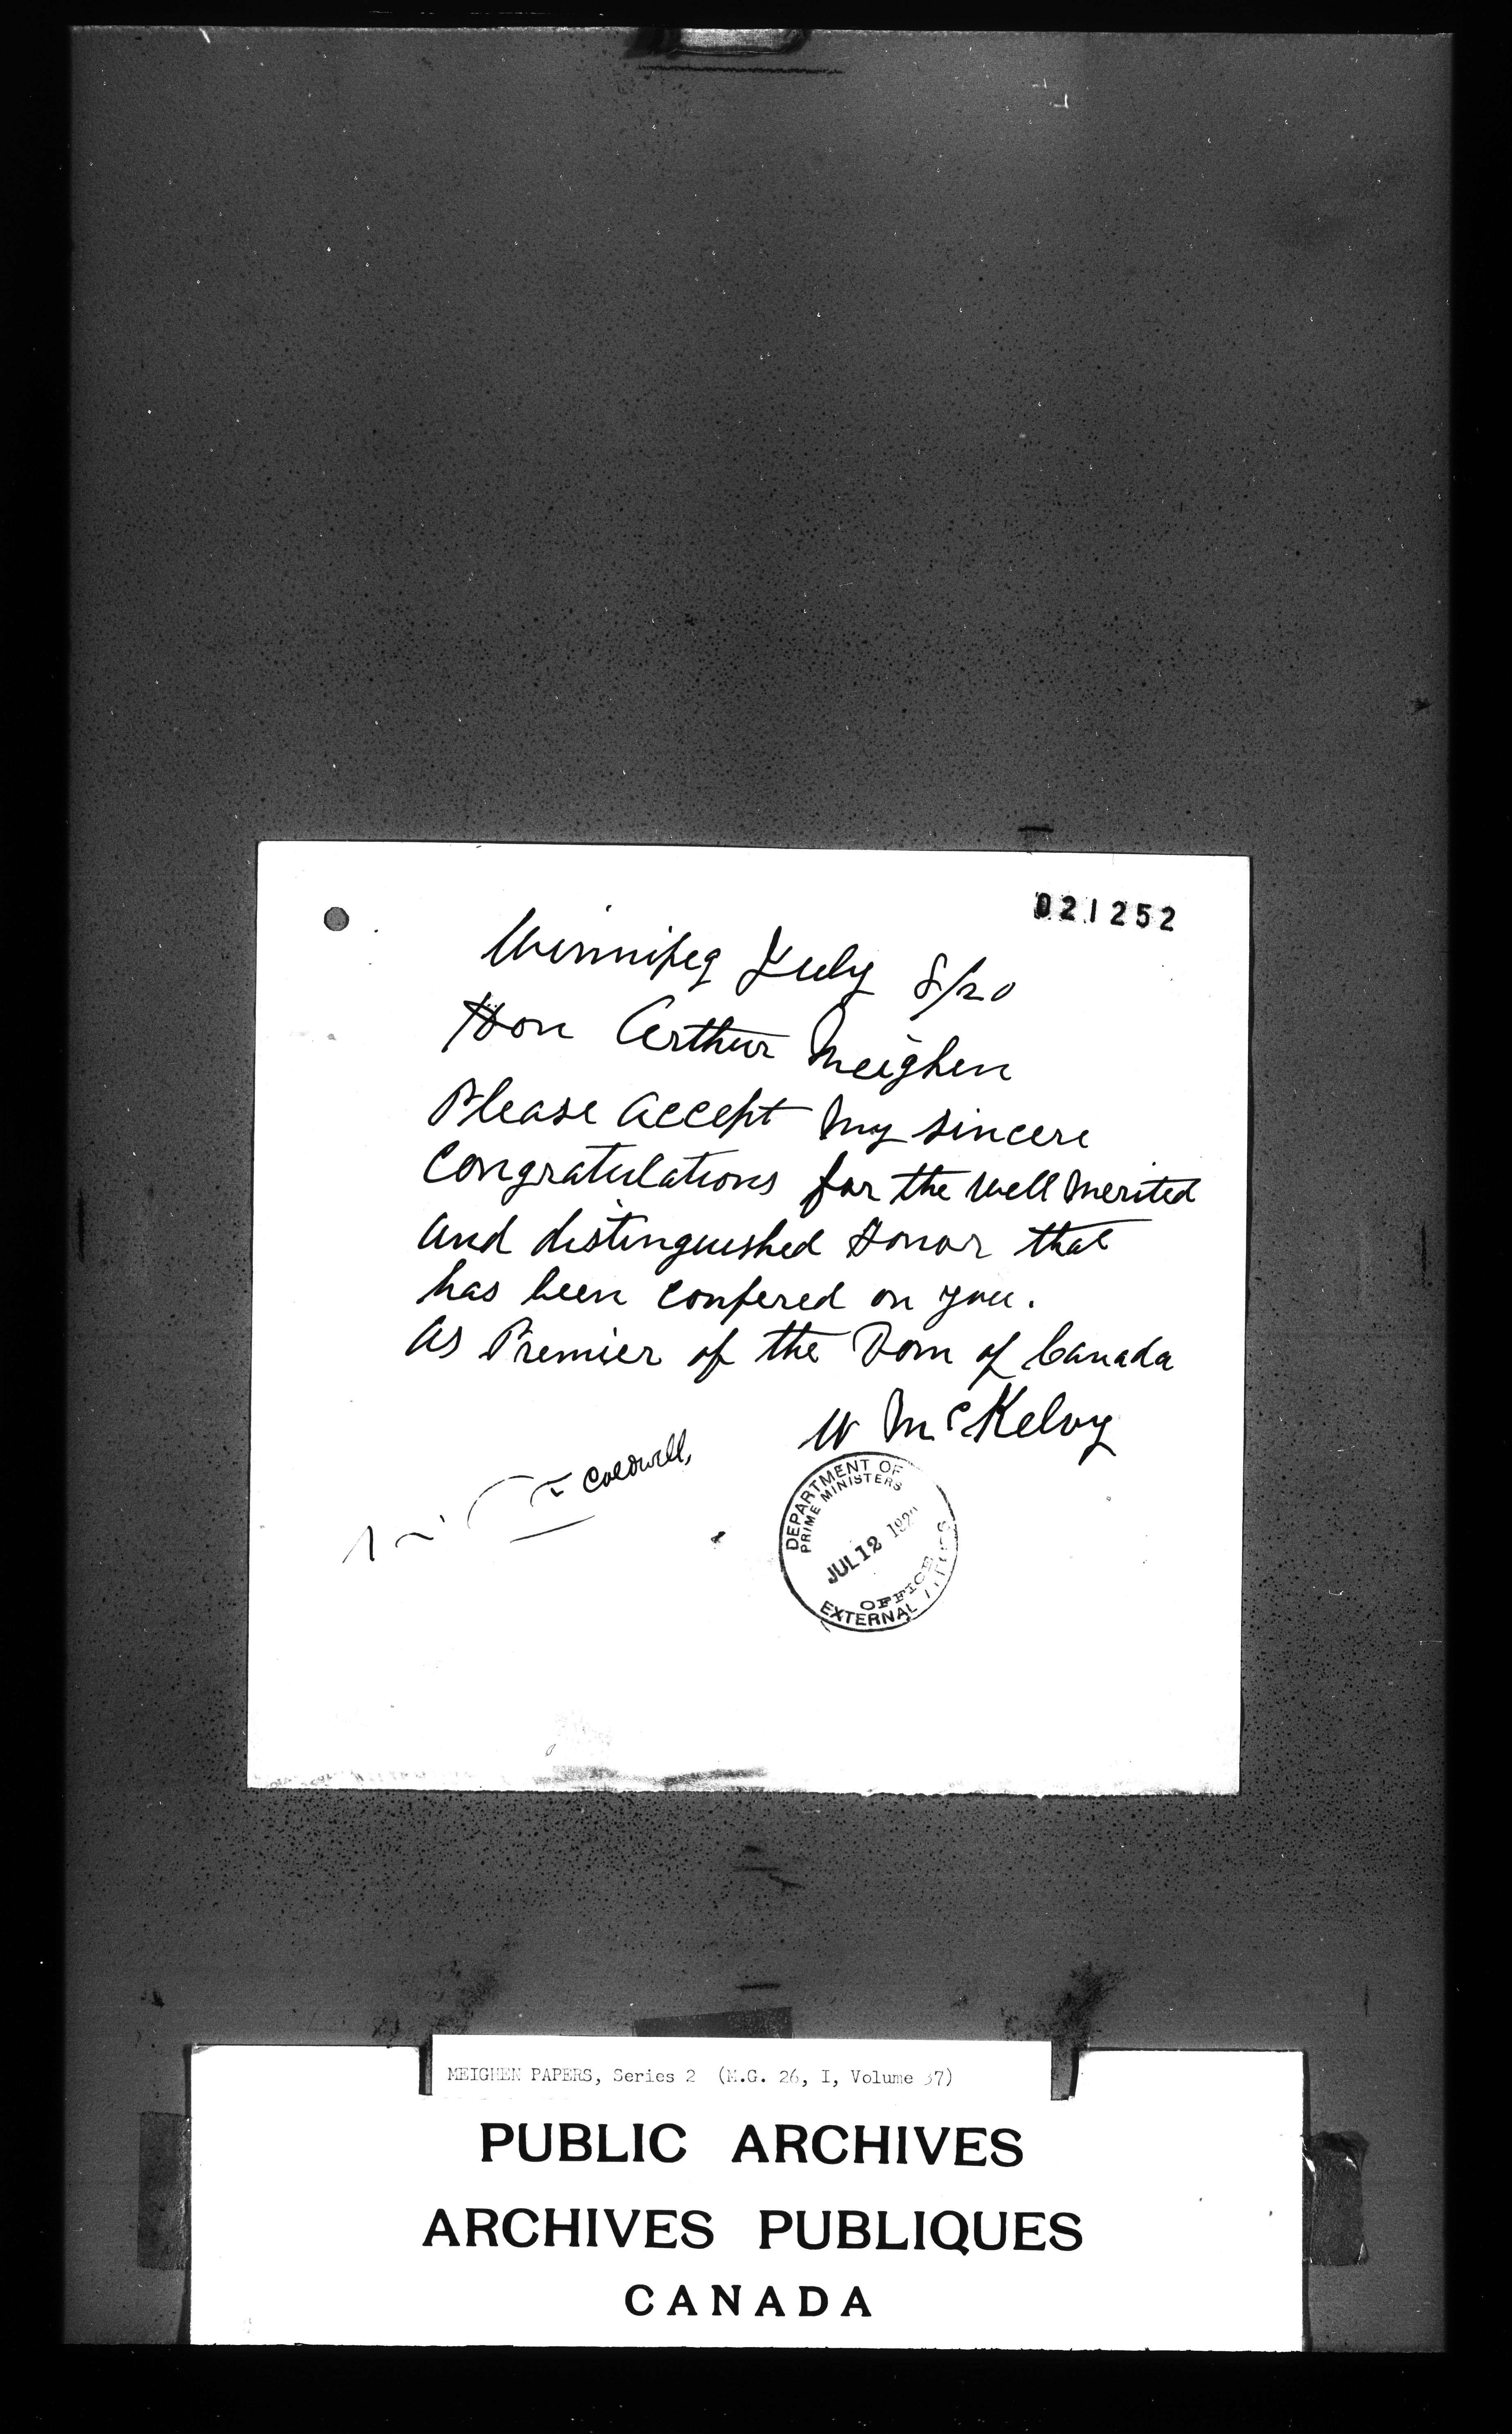 021252
Winnipeg July 8/20
Hon Arthur Meighen
Please accept my sincere
Congratulations for the well merited
and distinguished Honor that
has been confered on you.
As Premier of the Dom of Canada
W McKelvy
Coldwell,
DEPARTMENT OF
PRIME MINISTERS
JUL 12 1920
OFFICE
EXTERNAL
MEIGHEN PAPERS, Series 2 (M.G. 26, I, Volume 37)
PUBLIC ARCHIVES
ARCHIVES PUBLIQUES
CANADA